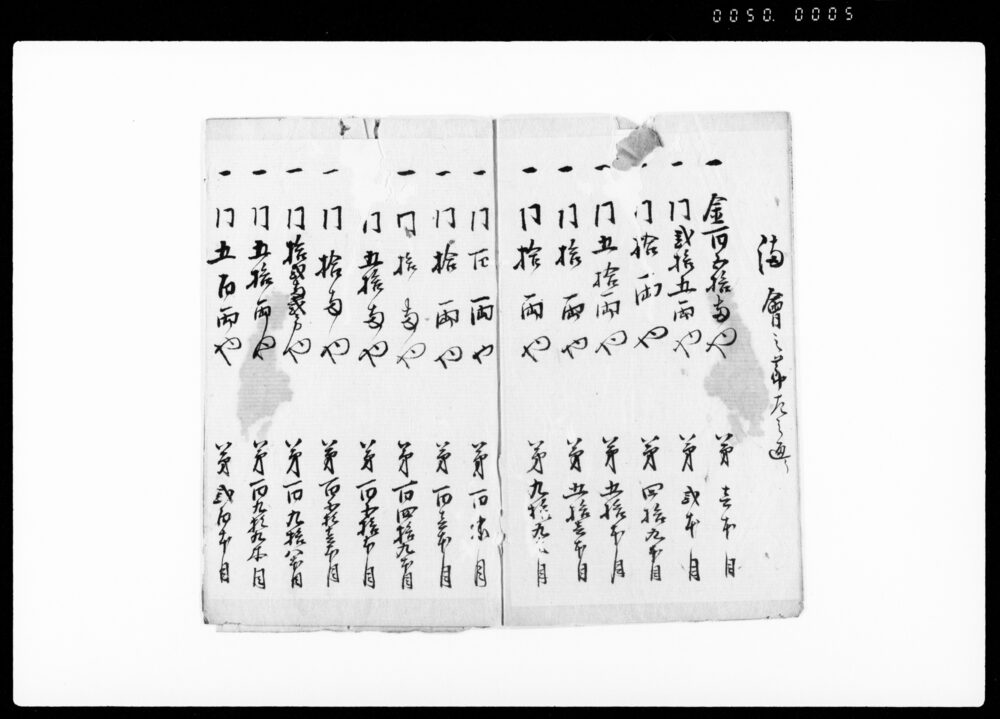 0050. 0005
満會之節左之通り
一 金百五拾両也 第壱本目
一 同弐拾五両也 第弐本目
一 同拾両也 第四拾九本目
一 同五拾両也 第五拾本目
一 同拾両也 第五拾壱本目
一 同拾両也 第九拾九本目
一 同百両也 第百本目
一 同拾両也 第百壱本目
一 同拾両也 第百四拾九本目
同五拾両也 第百五拾本目
一 同拾両也 第百五拾壱本目
一 同拾弐両弐分也 第百九拾八本目
一 同五拾両也 第百九拾九本目
一 同五百両也 第弐百本目